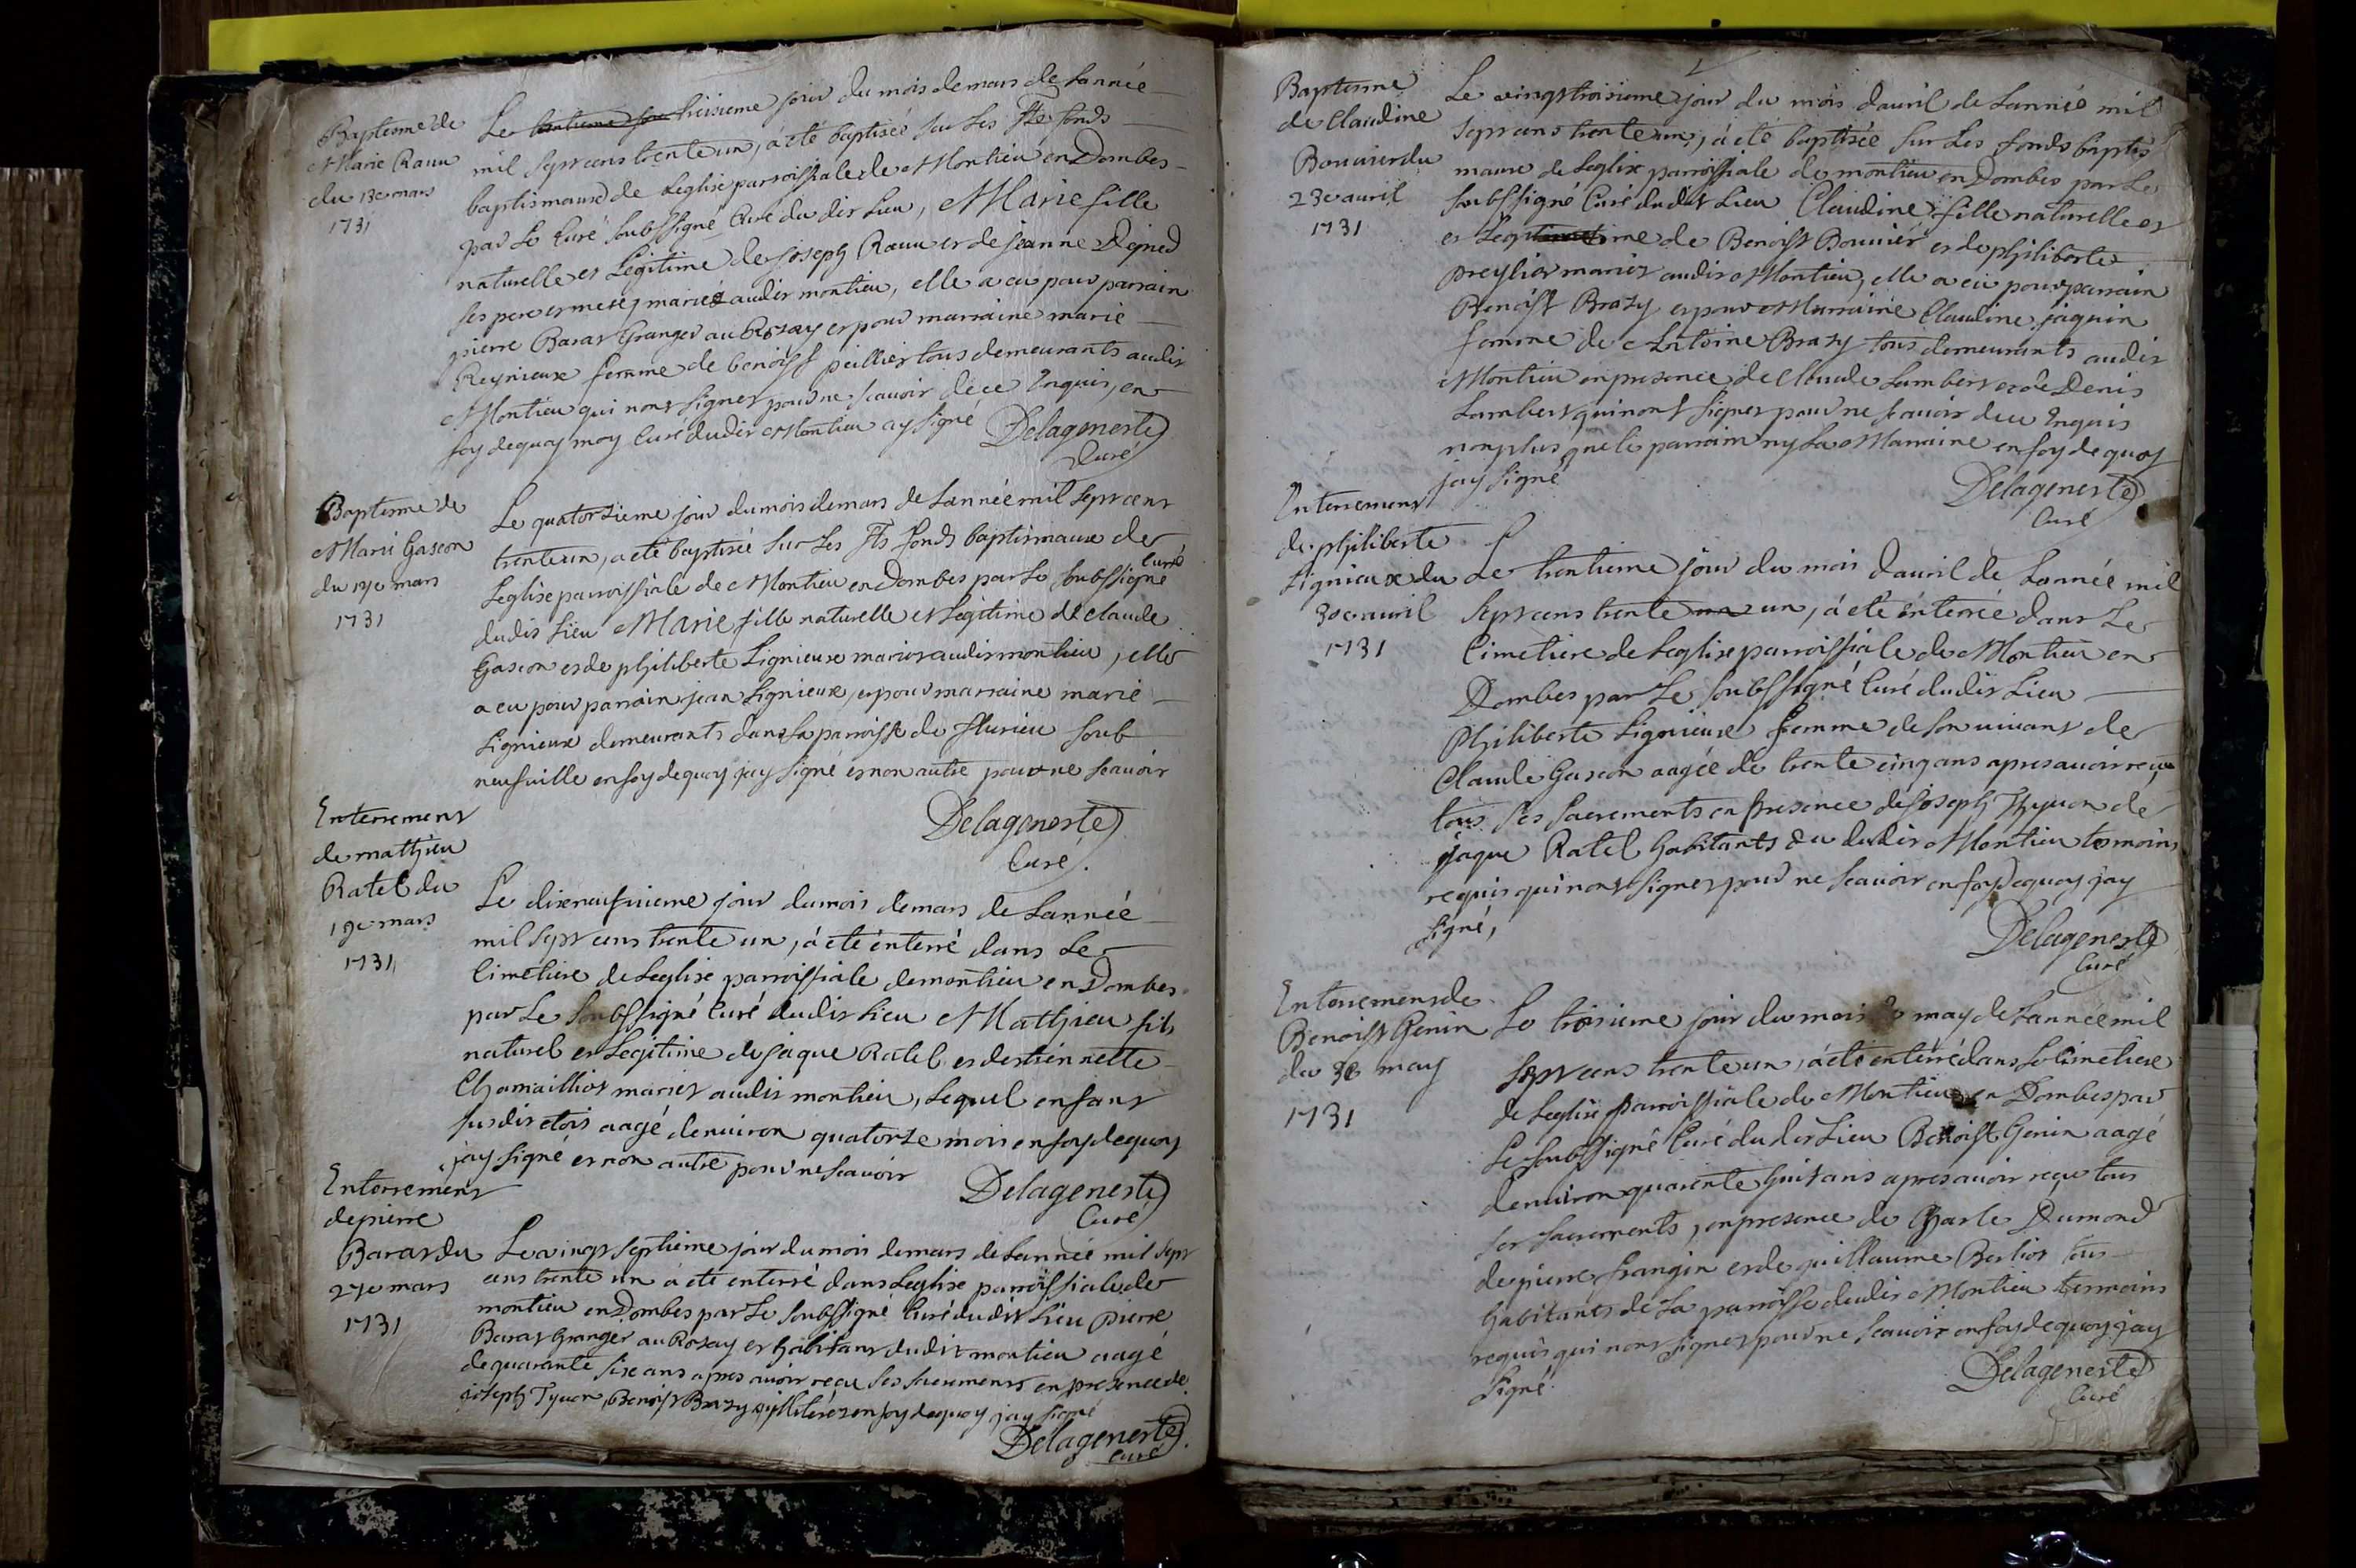 Baptesme de
Marie Rauu
du 13e mars
1731
Le treisieme jour du mois de mars de Lannée
mil sept cens trente un, á eté baptisée sur Les Sts fonds
baptismaux de Leglise parroissiale de Montieu en Dombes
par Le Curé soubssigné Curé du dit Lieu, Marie fille
naturelle et Legitime de Joseph Rauu et de jeanne
ses pere et mere, mariéz audit montieu, elle a eu pour parrain
pierre Barat Granger au Rozay et pour marraine marie
Reynieux femme de benoist peillier tous demeurants audit
Montieu qui n'ont signer pour ne scavoir de ce Enquis, en
foy de quoy moy Curé dudit Montieu ay signé Delageneste
Curé
Baptesme de
Marie Gascon
du 14e mars
1731
Le quatorzieme jour du mois de mars de Lannée mil sept cent
trente un, a eté baptisée sur Les Sts fonds baptismaux de
Leglise parroissiale de Montieu en Dombes par Le soubssigné Curé
dudit Lieu Marie fille naturelle et Legitime de Claude
Gascon et de philiberte Lignieux mariez audit montieu, elle
a eu pour parrain jean Lignieux, et pour marraine marie
Lignieux demeurants dans La parroisse de flurieu soub
neufuille en foy de quoy jay signé et non autre pour ne scavoir
Delageneste
Curé.
Enterrement
de mathieu
Ratel du
19e mars
1731
Le dixneufuieme jour du mois de mars de Lannée
mil sept cens trente un, á eté énterré dans Le
Cimetiere de Leglise parroissiale de montieu en Dombes
par Le soubssigné Curé dudit Lieu Mathieu fils
naturel et Legitime de jaque Ratel et destiennette
Chamaillior mariez audit montieu, Lequel enfant
susdit etois aagé denuiron quatorze mois en foy de quoy
jay signé et non autre pour ne scavoir
Delageneste
Curé
Enterrement
de pierre
Barat du
27e mars
1731
Le vingt septieme jour du mois de mars de Lannée mil sept
cens trente un a eté enterré dans Leglise parroissiale de
montieu en Dombes par Le soubssigné Curé dudit Lieu pierre
Barat Granger au Rozay et habitant dudit montieu aagé
de quarante six ans apres auoir reçu ses sacrements en presence de
joseph Tyuon, Benoist Brazy illiterez en foy de quoy jay signé
Delageneste
Curé
Baptesme
de Claudine
Bouuier du
23e auril
1731
Le vingt troisieme jour du mois dauril de Lannée mil
sept cens trente un, á eté baptisée sur Les fonds baptis
maux de Leglise parroissiale de montieu en Dombes par Le
soubssigné Curé dudit Lieu Claudine fille naturelle et
et Legitime de Benoist Bouuier et de philiberte
preylior mariez audit Montieu, elle a eu pour parrain
Benoist Brazy et pour Marraine Claudine jaquin
femme de Antoine Brazy tous demeurants audit
Montieu en presence de Claude Lambert et de Denis
Lambert qui n'ont signer pour ne scauoir de ce Enquis
non plus que le parrain ny La Marraine en foy de quoy
jay signé
Delageneste
Curé
Enterrement
de philiberte
Lignieux du
30e auril
1731
Le trentieme jour du mois dauril de Lannée mil
sept cens trente un, á eté énterrée dans Le
Cimetiere de Leglise parroissiale de Montieu en
Dombes par Le soubssigné Curé dudit Lieu
Philiberte Lignieux femme de son uiuant de
Claude Gascon aagée de trente cinq ans apres auoir reçu
tous ses sacrements en presence de joseph Thyuon de
jaque Ratel habitants du dudit Montieu temoins
requis qui n'ont signer pour ne scauoir en foy de quoy jay
signé,
Delageneste
Curé
Enterrement de
Benoist Genin
du 3e may
1731
Le troisieme jour du mois de may de Lannée mil
sept cens trente un, á eté enterré dans Le Cimetiere
de Leglise parroissiale de Montieu en Dombes par
Le soubssigné Curé dudit Lieu Benoist Genin aagé
denuiron quarente huit ans apres auoir reçu tous
ses sacrements, en presence de Charle Dumond
de pierre frangin et de guillaume Berlior tous
habitants de La parroisse dudit Montieu temoins
requis qui n'ont signer pour ne scauoir en foy de quoy jay
signé.
Delageneste
Curé